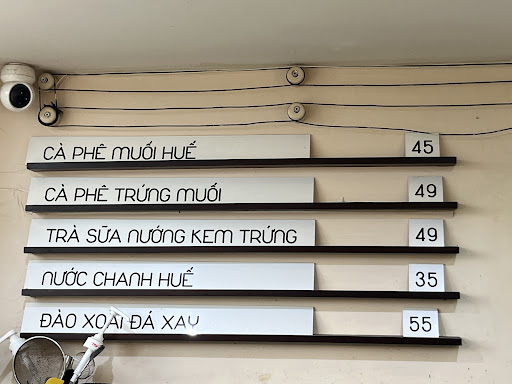 CÀ PHÊ MUỐI HUẾ 45
CÀ PHÊ TRỨNG MUỐI 49
TRÀ SỮA NƯỚNG KEM TRỨNG 49
NƯỚC CHANH HUẾ 35
ĐÀO XOÀI ĐÁ XAY 55